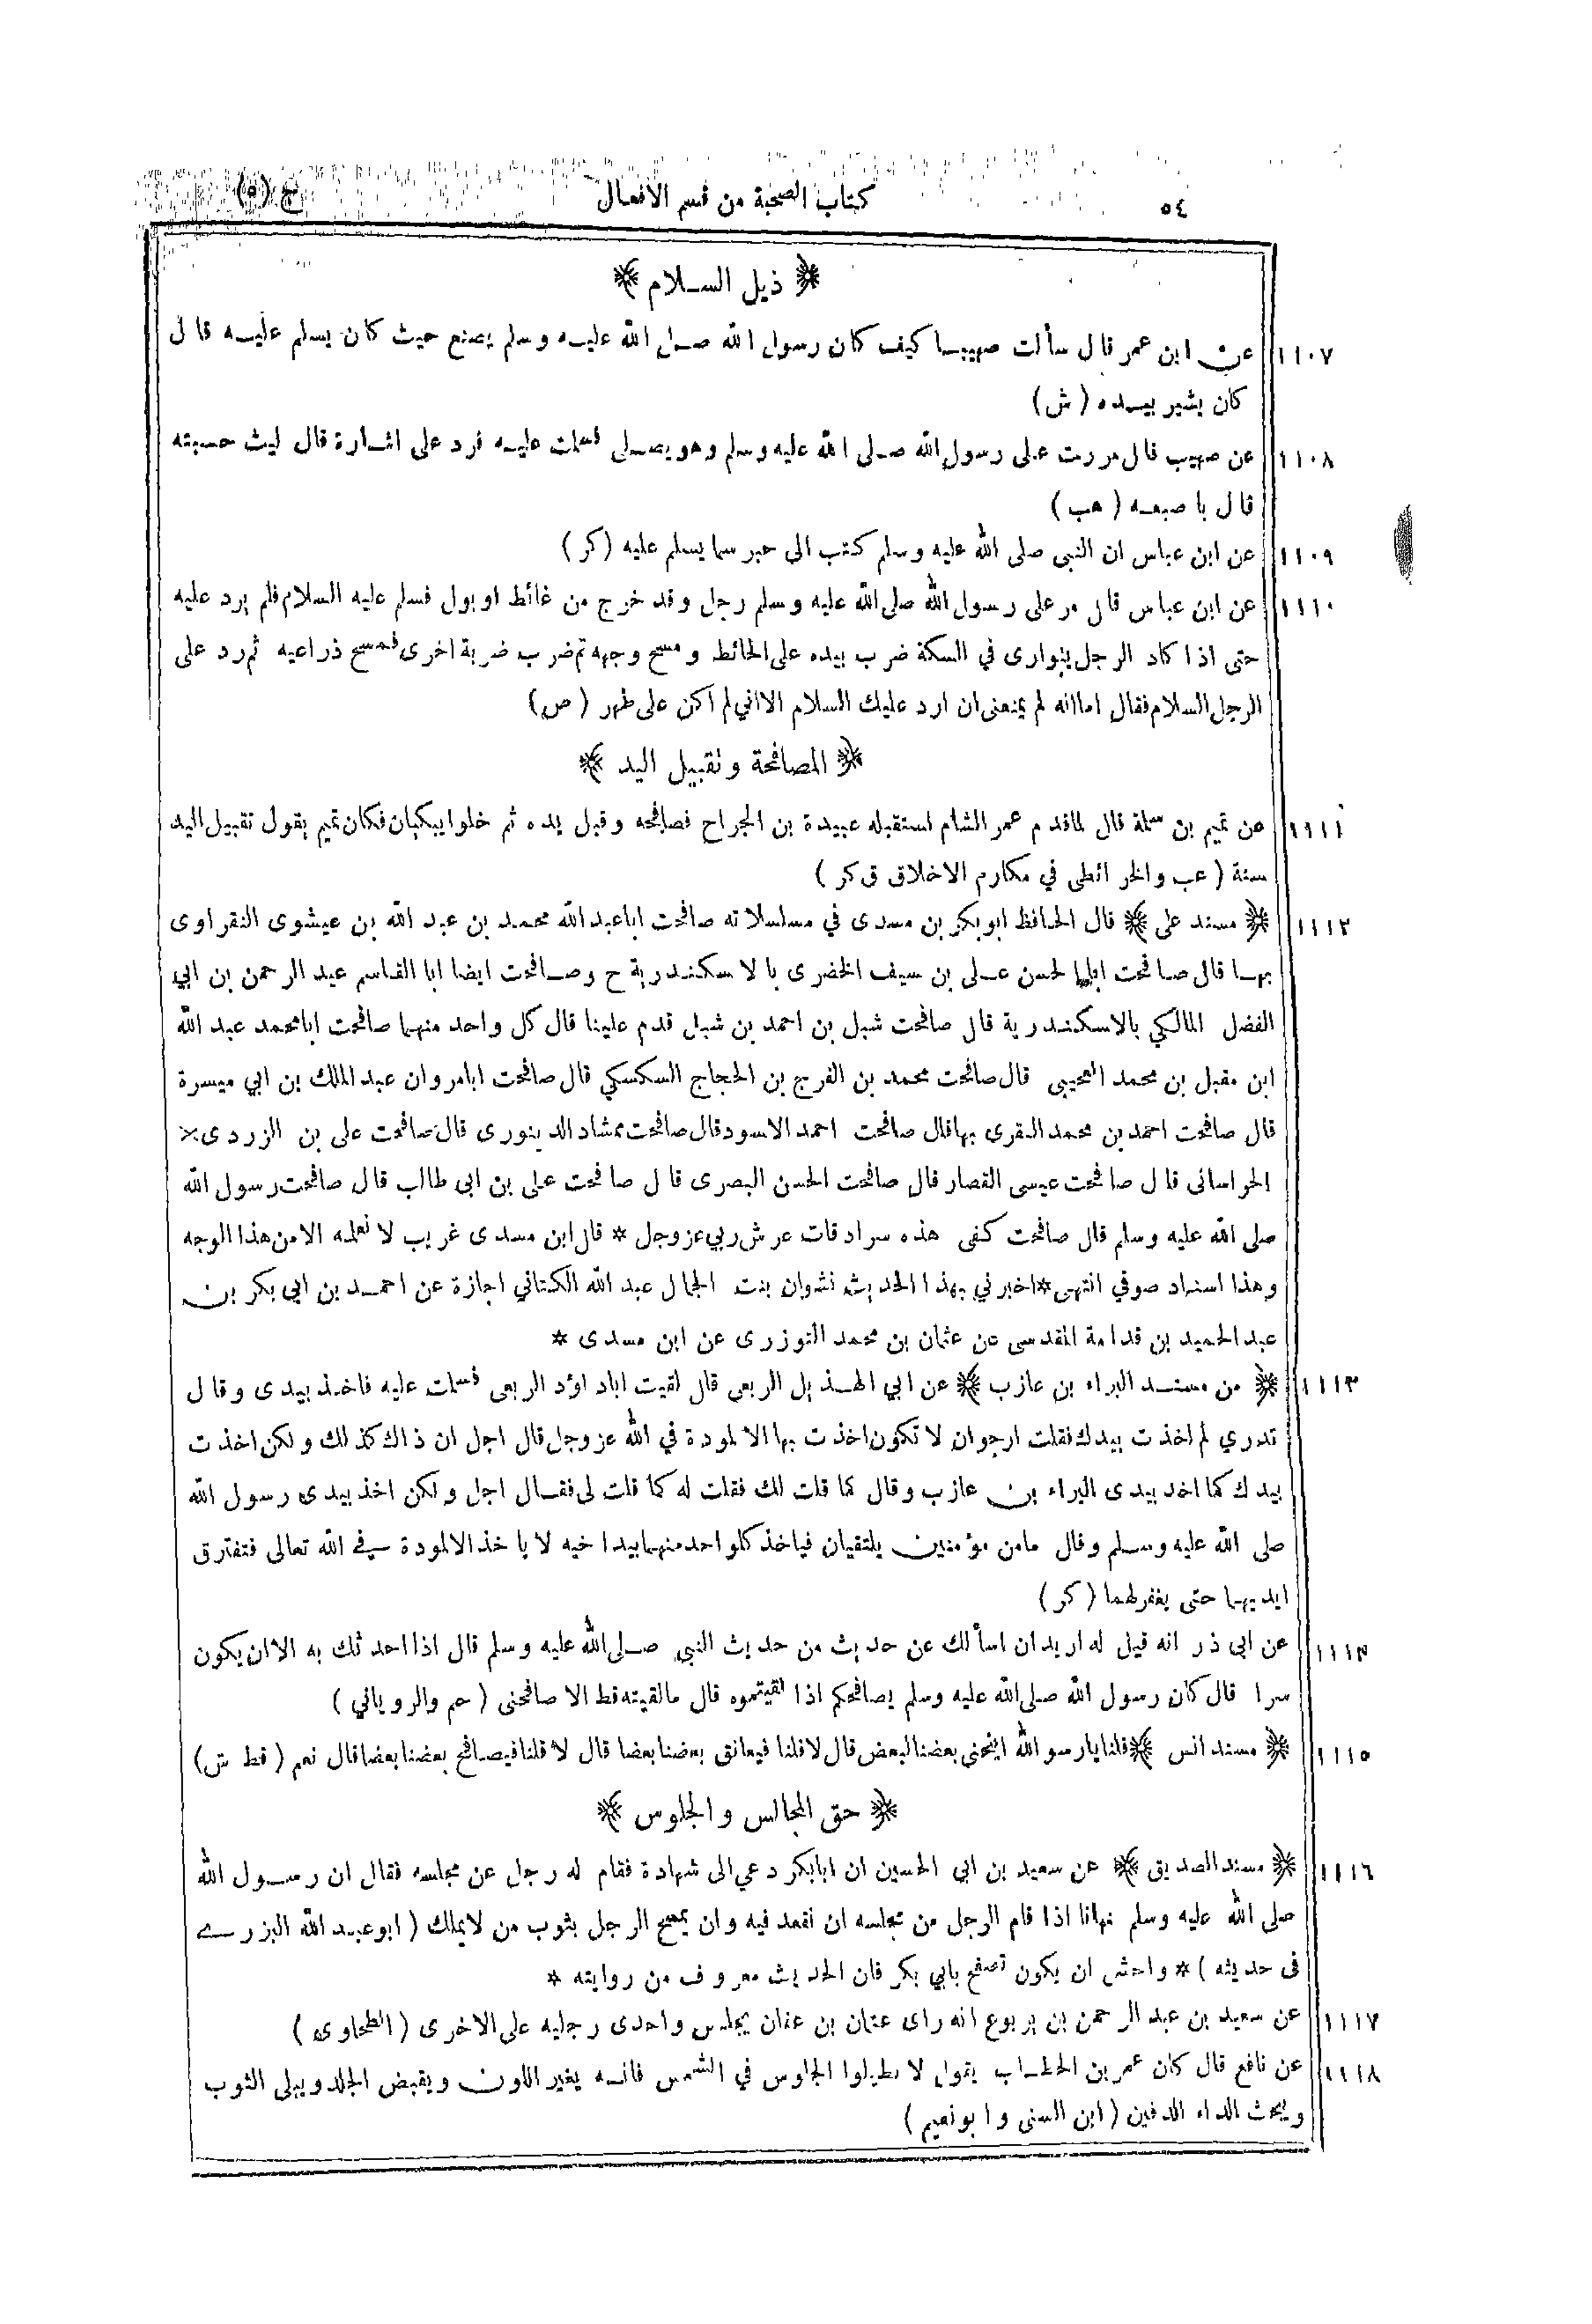 ٥٤
كتاب الصحبة من قسم الافعال
ج (٥)
﴿ ذيل السلام ﴾
١١٠٧ عن ابن عمر قال سألت صهيبا كيف كان رسول الله صلى الله عليه وسلم يصنع حيث كان يسلم عليه قال
كان يشير بيده (ش)
١١٠٨ عن صهيب قال مررت على رسول الله صلى الله عليه وسلم وهو يصلى فسلمت عليه فرد على اشارة قال ليث حسبته
قال با صبعه (هب)
١١٠٩ عن ابن عباس ان النبى صلى الله عليه وسلم كتب الى حبر سما يسلم عليه (كر)
١١١٠ عن ابن عباس قال مر على رسول الله صلى الله عليه وسلم رجل وقد خرج من غائط او بول فسلم عليه السلام فلم يرد عليه
حتى اذا كاد الرجل يتوارى في السكة ضرب بيده على الحائط ومسح وجهه ثم ضرب ضربة اخرى فمسح ذراعيه ثم رد على
الرجل السلام فقال اما انه لم يمنعنى ان ارد عليك السلام الا اني لم اكن على طهر (ص)
﴿ المصافحة وتقبيل اليد ﴾
١١١١ عن تميم بن سلمة قال لما قدم عمر الشام استقبله عبيدة بن الجراح فصافحه وقبل يده ثم خلوا يبكيان فكان تميم يقول تقبيل اليد
سنة (عب والخرائطى في مكارم الاخلاق ق كر)
١١١٢ ﴿ مسند على ﴾ قال الحافظ ابو بكر بن مسدى في مسلسلاته صافحت ابا عبد الله محمد بن عبد الله بن عيشوى النقراوى
بها قال صافحت ابا الحسن على بن سيف الخضرى بالاسكندرية ح وصافحت ايضا ابا القاسم عبد الرحمن بن ابي
الفضل المالكي بالاسكندرية قال صافحت شبل بن احمد بن شبل قدم علينا قال كل واحد منهما صافحت ابا محمد عبد الله
ابن مقبل بن محمد العجيبى قال صافحت محمد بن الفرج بن الحجاج السكسكي قال صافحت ابا مروان عبد الملك بن ابي ميسرة
قال صافحت احمد بن محمد النقرى بها قال صافحت احمد الاسود قال صافحت ممشاد الدينورى قال صافحت على بن الزردى *
الخراسانى قال صافحت عيسى القصار قال صافحت الحسن البصرى قال صافحت على بن ابى طالب قال صافحت رسول الله
صلى الله عليه وسلم قال صافحت كفى هذه سرادقات عرش ربي عز وجل * قال ابن مسدى غريب لا نعلمه الا من هذا الوجه
وهذا اسناد صوفي انتهى * اخبرني بهذا الحديث نشوان بنت الجمال عبد الله الكتاني اجازة عن احمد بن ابي بكر بن
عبد الحميد بن قدامة المقدسى عن عثمان بن محمد التوزرى عن ابن مسدى *
١١١٣ ﴿ من مسند البراء بن عازب ﴾ عن ابي الهذيل الربعى قال لقيت ابا داؤد الربعى فسلمت عليه فاخذ بيدى وقال
تدري لم اخذت بيدك فقلت ارجو ان لا تكون اخذت بها الا لمودة في الله عز وجل قال اجل ان ذاك كذلك ولكن اخذت
بيدك كما اخذ بيدى البراء بن عازب وقال كما قلت لك فقلت له كما قلت لى فقال اجل ولكن اخذ بيدى رسول الله
صلى الله عليه وسلم وقال مامن مؤمنين يلتقيان فياخذ كل واحد منهما بيد اخيه لا يا خذ الا لمودة في الله تعالى فتفترق
ايديهما حتى يغفر لهما (كر)
١١١٤ عن ابى ذر انه قيل له اريد ان اسألك عن حديث من حديث النبي صلى الله عليه وسلم قال اذا احدثك به الا ان يكون
سرا قال كان رسول الله صلى الله عليه وسلم يصافحكم اذا لقيتموه قال ما لقيته قط الا صافحنى (حم والروياني)
١١١٥ ﴿ مسند انس ﴾ قلنا يا رسو الله اينحنى بعضنا لبعض قال لا قلنا فيعانق بعضنا بعضا قال لا قلنا فيصافح بعضنا بعضا قال نعم (قط ش)
﴿ حق المجالس والجلوس ﴾
١١١٦ ﴿ مسند الصديق ﴾ عن سعيد بن ابي الحسين ان ابا بكر دعي الى شهادة فقام له رجل عن مجلسه فقال ان رسول الله
صلى الله عليه وسلم نهانا اذا قام الرجل من مجلسه ان نقعد فيه وان يمسح الرجل بثوب من لا يملك (ابو عبد الله البزرى
فى حديثه) * واخشى ان يكون تصفح بابي بكر فان الحديث معروف من روايته *
١١١٧ عن سعيد بن عبد الرحمن بن يربوع انه راى عثمان بن عفان يجلس واحدى رجليه على الاخرى (الطحاوى)
١١١٨ عن نافع قال كان عمر بن الخطاب يقول لا تطيلوا الجلوس في الشمس فانه يغير اللون ويقبض الجلد ويبلى الثوب
ويحث الداء الدفين (ابن السنى وابو نعيم)